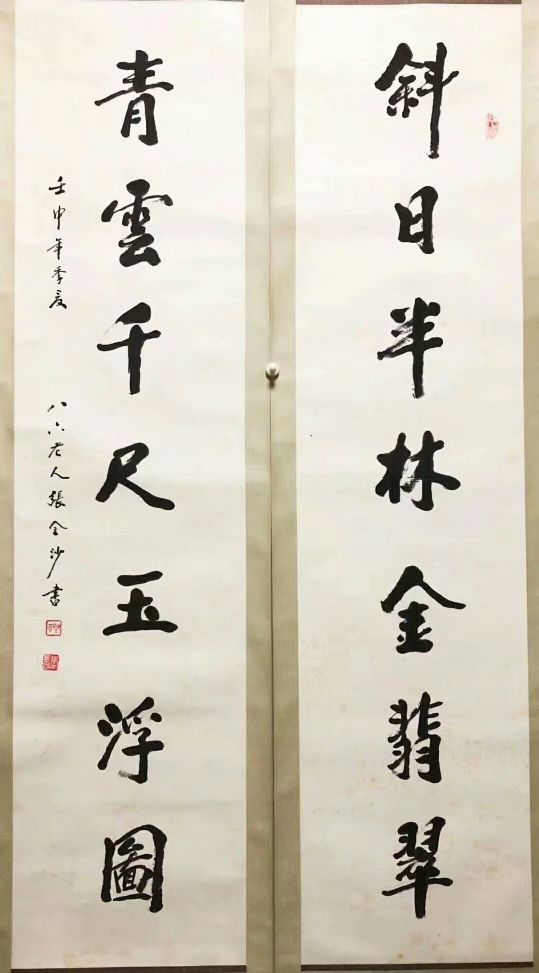 斜日半林金翡翠
青雲千尺玉浮圖
壬申年季夏
八六老人張全沙書